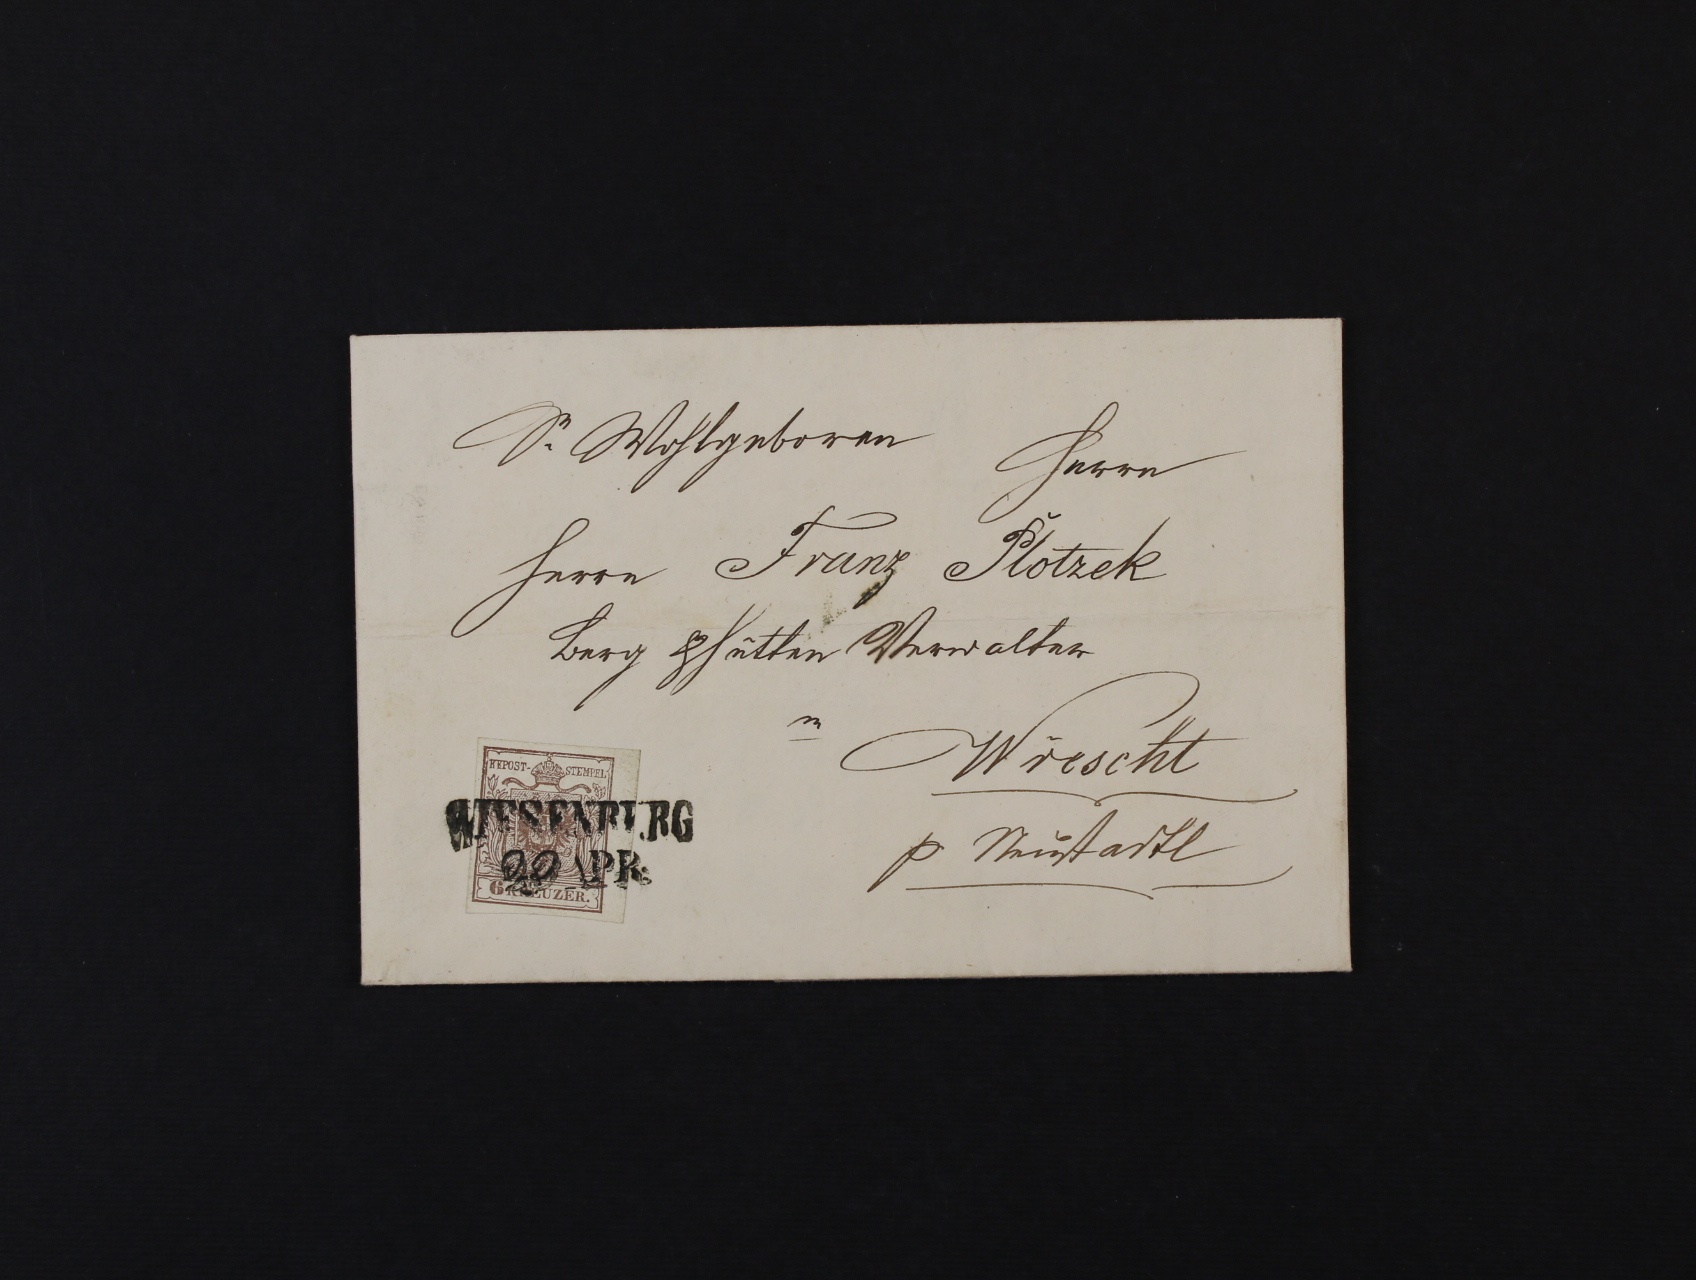 Sr. Wohlgeboren Herrn
Herrn Franz Plotzek
Berg & Hütten Verwalter
in
Wřescht
p Neustadtl
KK POST-STEMPEL
WIESENBURG
22 APR.
6 KREUZER.